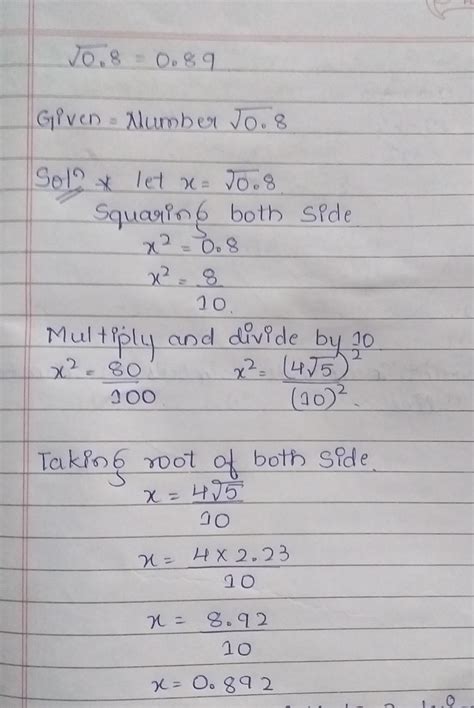 √0.8 = 0.89
Given = Number √0.8
Solⁿ * let x = √0.8
Squaring both side
x² = 0.8
x² = 8/10
Multiply and divide by 10
x² = 80/100 x² = (4√5)²/(10)².
Taking root of both side.
x = 4√5/10
x = 4 × 2.23/10
x = 8.92/10
x = 0.892